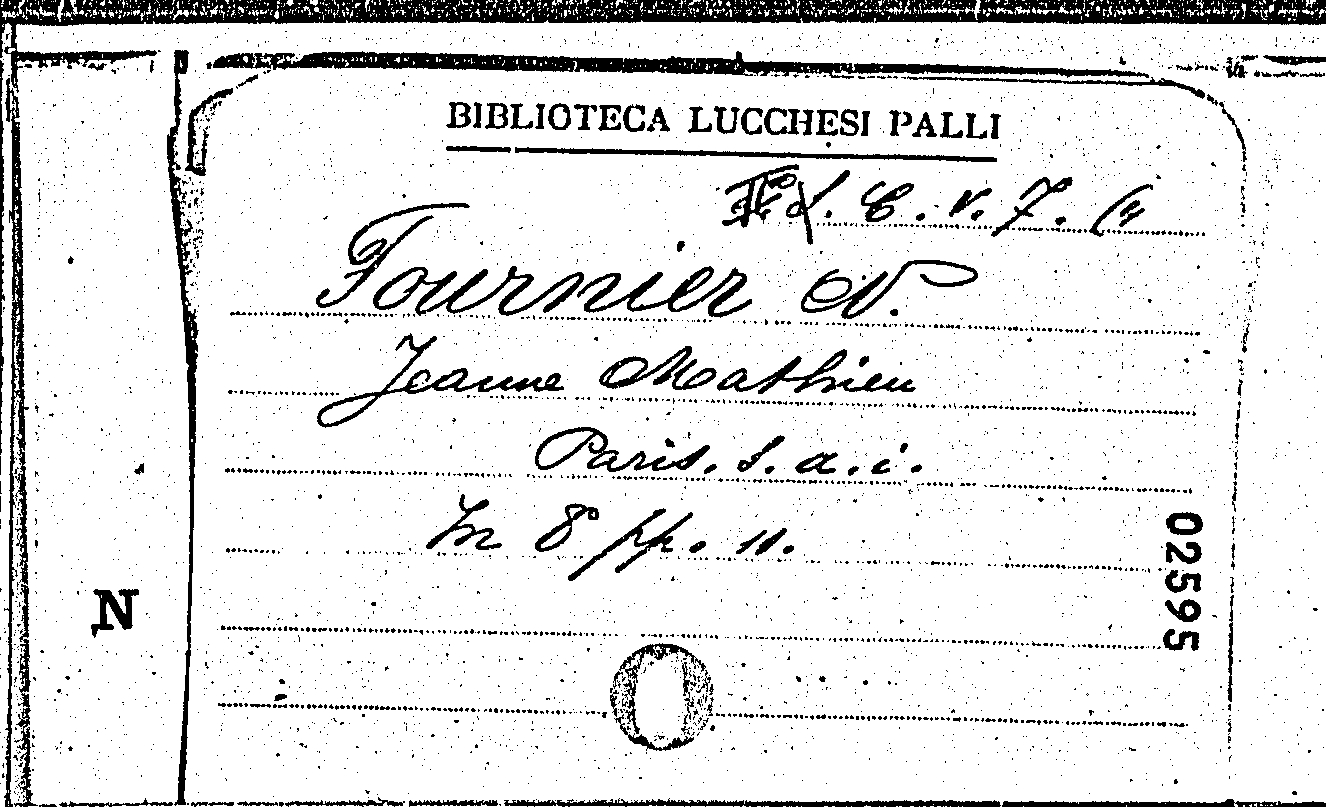 BIBLIOTECA LUCCHESI PALLI
C. V. 7. (4
Fournier N.
Jeanne Mathieu
Paris. s. a. i.
In 8° pp. 11.
02595
N